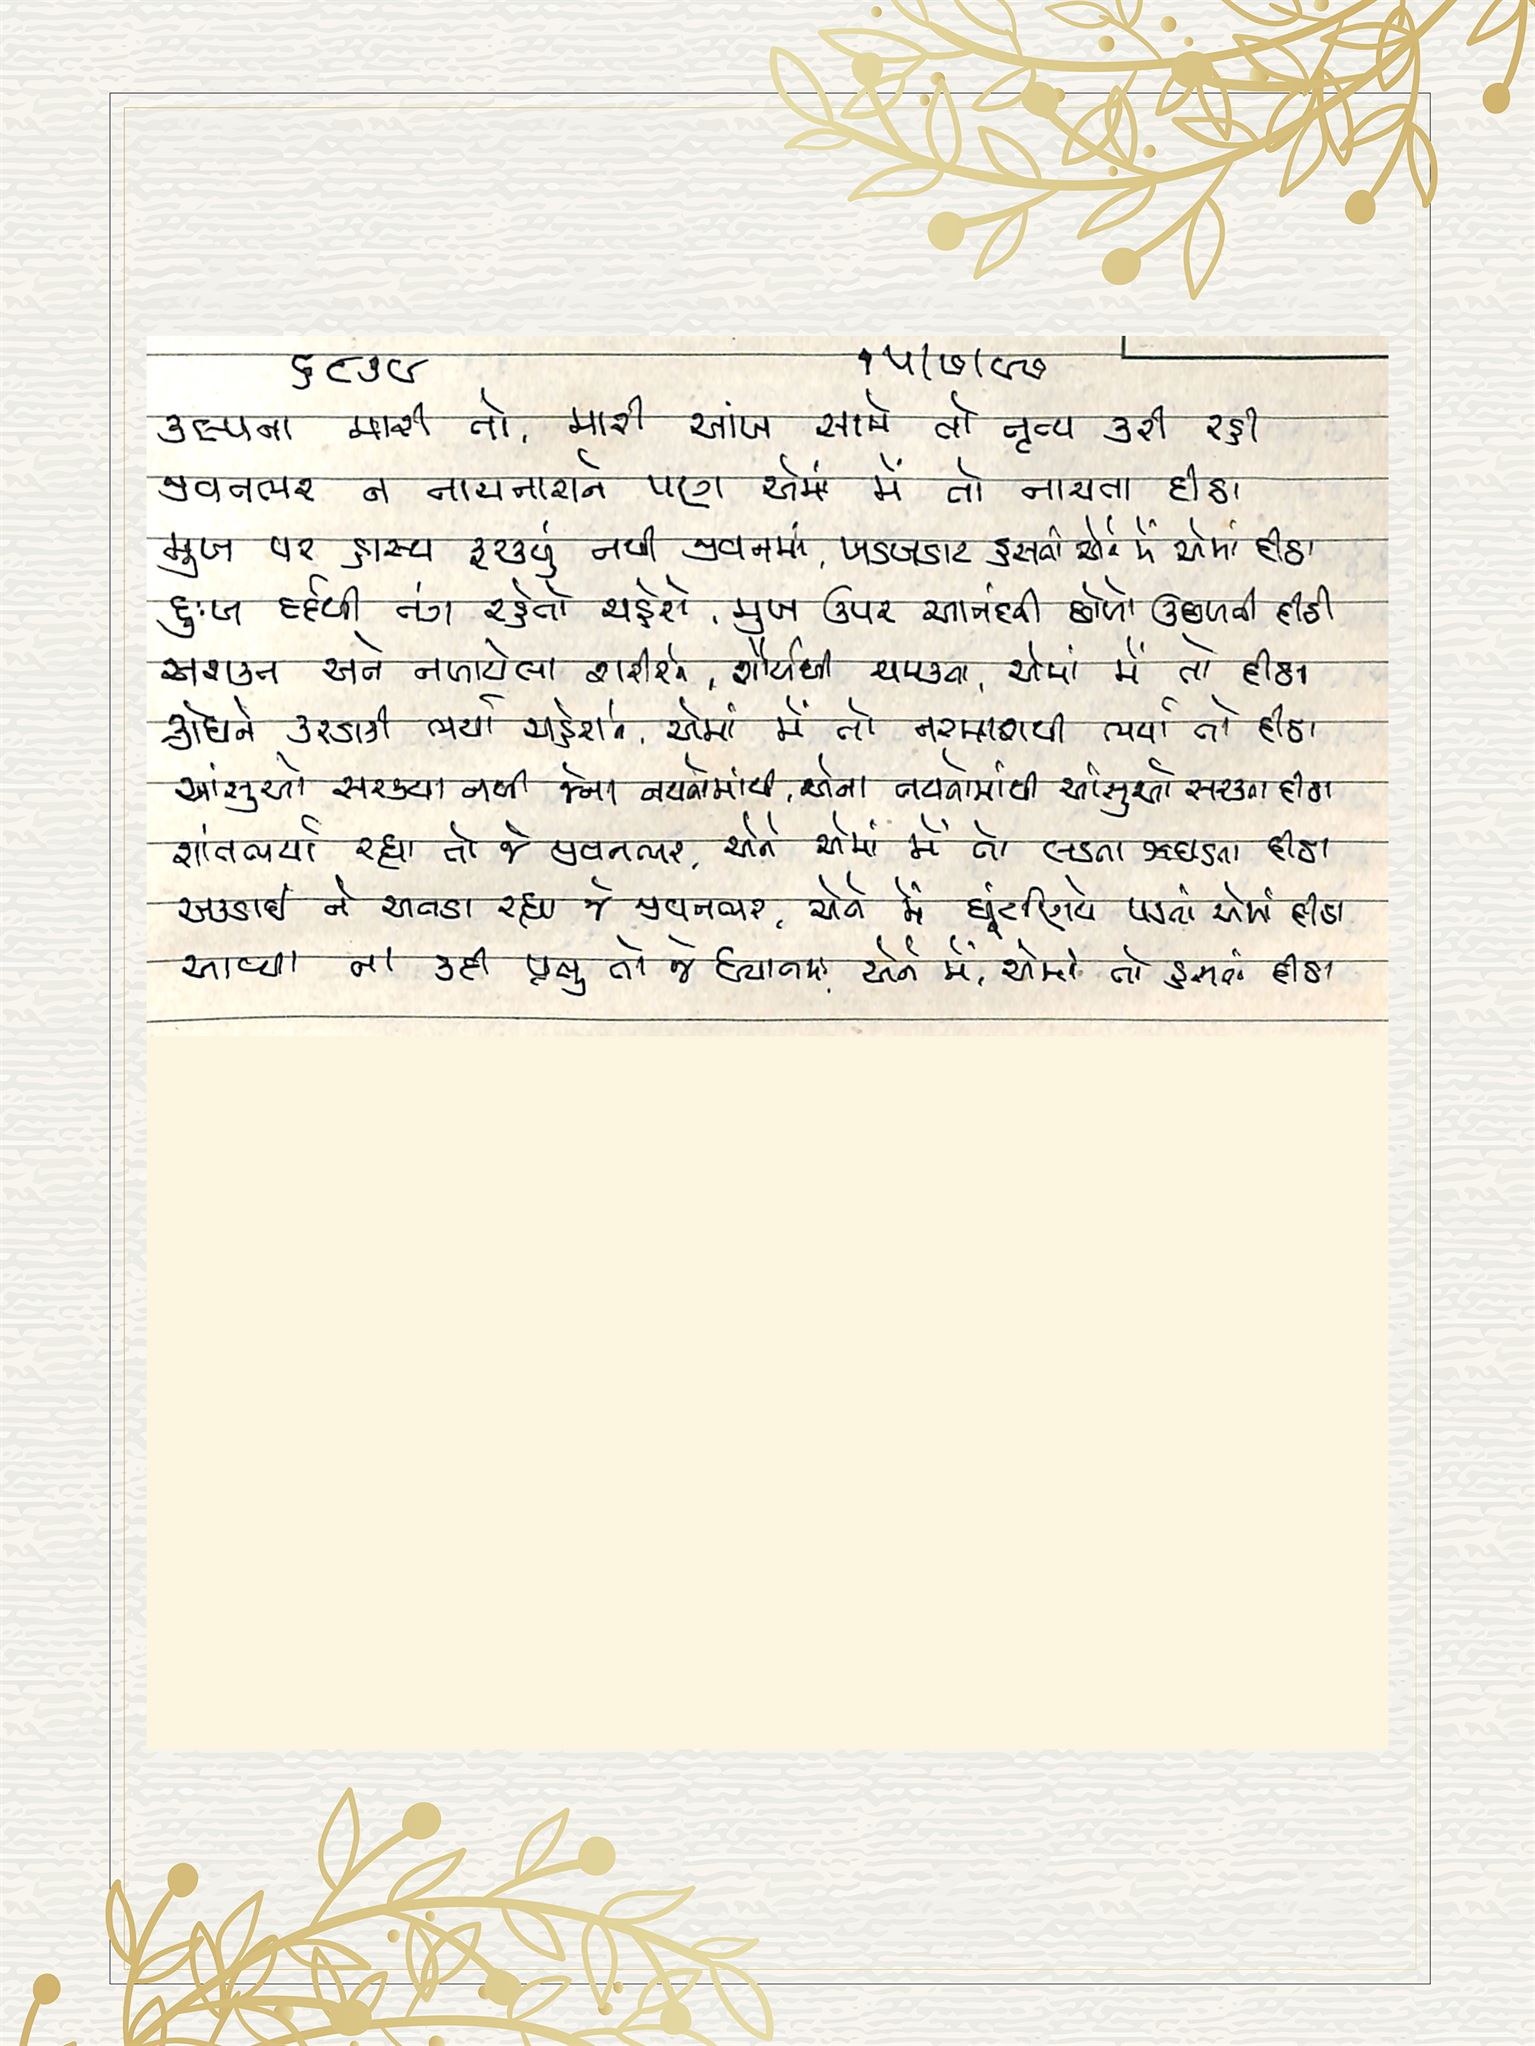 ૬૮૭૯ ૧૫/૭/૯૭
કલ્પના મારી તો, મારી આંખ સામે તો નૃત્ય કરી રહી
જીવનભર ન નાચનારાને પણ એમાં મેં તો નાચતા દીઠા
મુખ પર હાસ્ય ફરક્યું નથી જીવનમાં, ખડખડાટ હસતાં એને મેં એમાં દીઠા
દુઃખ દર્દથી તંગ રહેતો ચહેરો, મુખ ઉપર આનંદની છોળો ઉછળતી દીઠી
અશક્ત અને નબળા શરીરને, શૌર્યથી ચમકતા, એમાં મેં તો દીઠા
ક્રોધને કરડાકી ભર્યા ચહેરાને, એમાં મેં તો નરમાશથી ભર્યા તો દીઠા
આંસુઓ સરક્યા નથી જેના નયનોમાંથી, એના નયનોમાંથી આંસુઓ સરકતા દીઠા
શાંતભર્યા રહ્યા તો જે જીવનભર, એને એમાં મેં તો લડતા ઝઘડતા દીઠા
અકડાઈ ને અકડા રહ્યા જે જીવનભર, એને મેં ઘૂંટણિયે પડતાં એમાં દીઠા
આવ્યા ના કદી પ્રભુ તો જે ધ્યાનમાં, એને મેં, એમાં તો હસતાં દીઠા